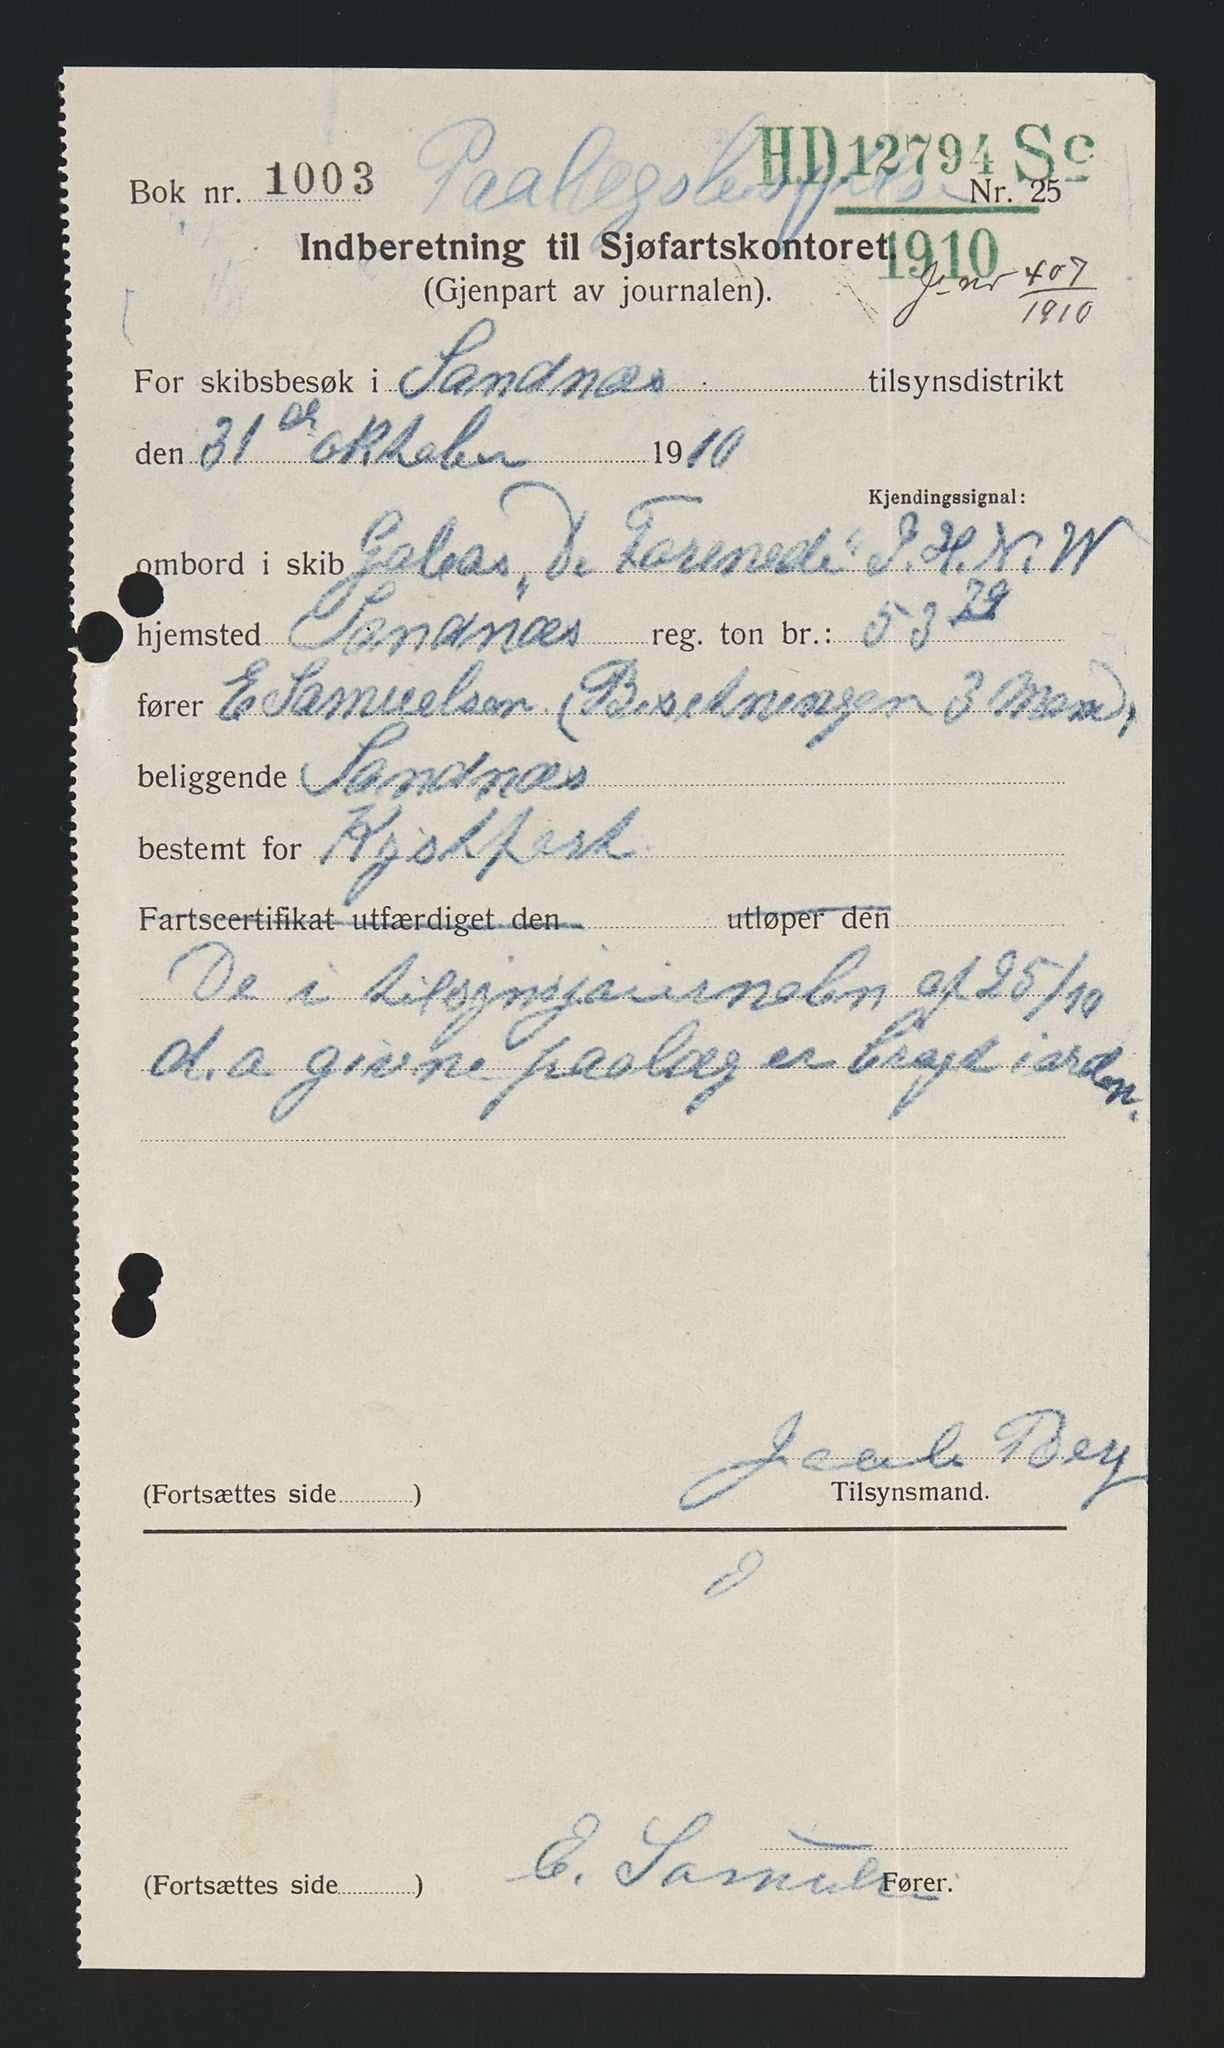 H.D. 12794 Sc
Bok nr. 1003 Nr. 25
Indberetning til Sjøfartskontoret. 1910
(Gjenpart av journalen). J. nr 407/1910
For skibsbesøk i Sandnæs tilsynsdistrikt
den 31 oktober 1910
Kjendingssignal:
ombord i skib Galeas "De Forenede" J. H. N. W
hjemsted Sandnæs reg. ton br.: 53 79
fører E Samuelsen (Besetningen 3 Man),
beliggende Sandnæs
bestemt for Kystfart
Fartscertifikat utfærdiget den utløper den
De i tilsynsjournalen af 25/10
d.a givne paalæg er bragt i orden.
Jacob Berg
(Fortsættes side ) Tilsynsmand.
E. Samuelsen
(Fortsættes side ) Fører.